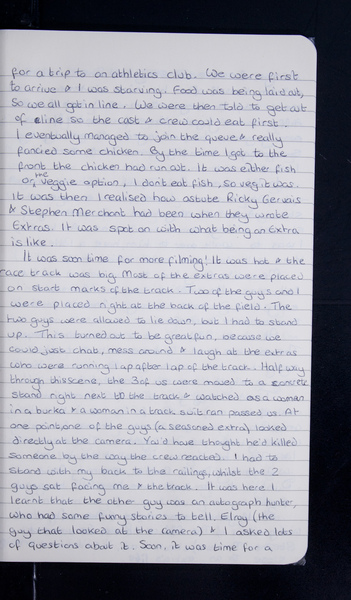 for a trip to an athletics club. We were first
to arrive & I was starving. Food was being laid out,
so we all got in line. We were then told to get out
of line so the cast & crew could eat first.
I eventually managed to join the queue & really
fancied some chicken. By the time I got to the
front the chicken had run out. It was either fish
or the veggie option. I dont eat fish, so veg it was.
It was then I realised how astute Ricky Gervais
& Stephen Merchant had been when they wrote
Extras. It was spot on with what being an Extra
is like.
It was soon time for more filming! It was hot & the
race track was big. Most of the extras were placed
on start marks of the track. Two of the guys and I
were placed right at the back of the field. The
two guys were allowed to lie down, but I had to stand
up. This turned out to be great fun, because we
could just chat, mess around & laugh at the extras
who were running lap after lap of the track. Half way
through this scene, the 3 of us were moved to a concrete
stand right next to the track & watched as a woman
in a burka & a woman in a track suit ran passed us. At
one point, one of the guys (a seasoned extra) looked
directly at the camera. You'd have thought he'd killed
someone, by the way the crew reacted. I had to
stand with my back to the railings, whilst the 2
guys sat facing me & the track. It was here I
learnt that the other guy was an autograph hunter,
who had some funny stories to tell. Elroy (the
guy that looked at the camera) & I asked lots
of questions about it. Soon, it was time for a